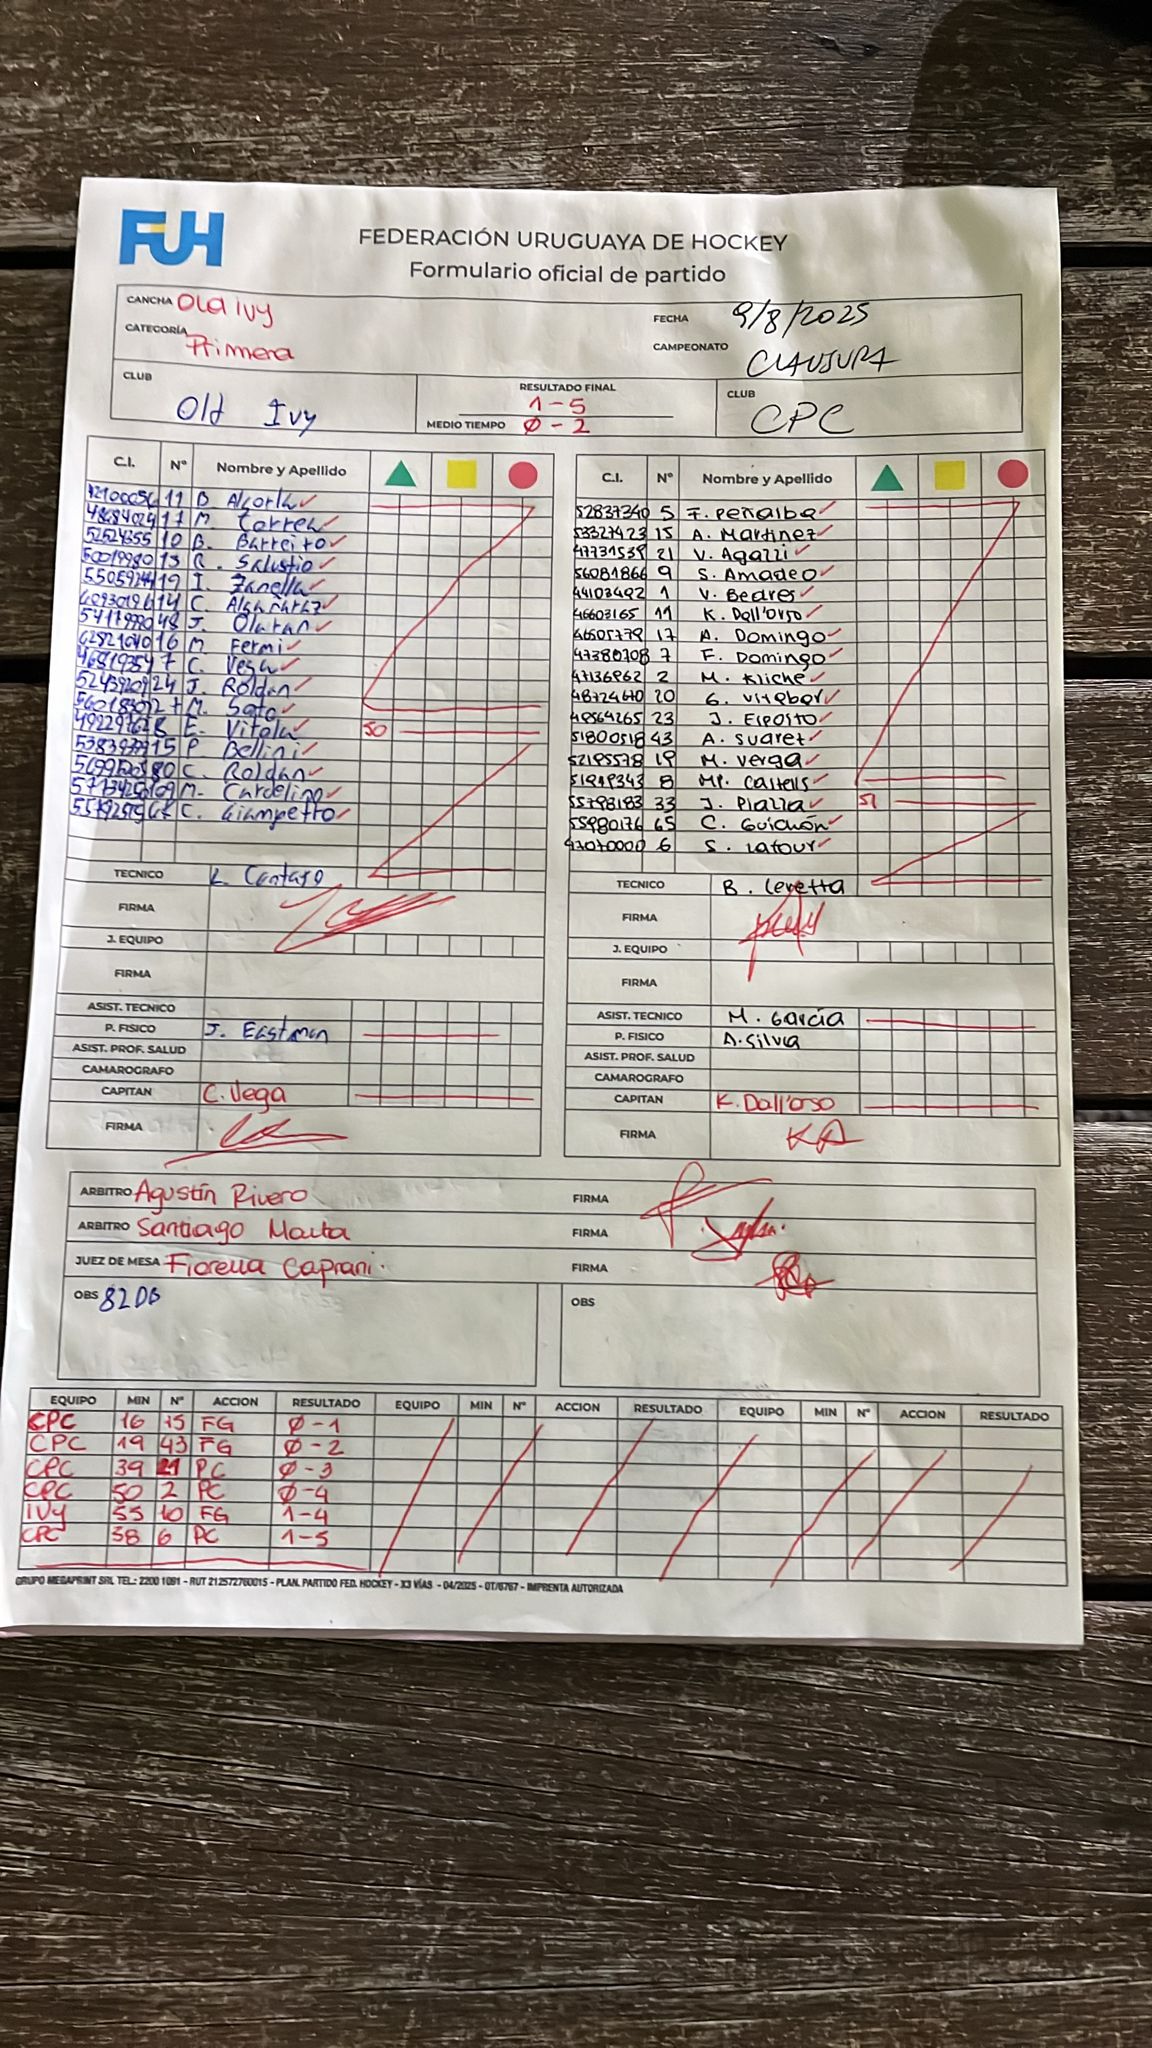 FUH
FEDERACIÓN URUGUAYA DE HOCKEY
Formulario oficial de partido
CANCHA Old Ivy
FECHA 9/8/2025
CATEGORÍA Primera
CAMPEONATO CLAUSURA
CLUB Old Ivy
RESULTADO FINAL 1-5
MEDIO TIEMPO Ø-2
CLUB CPC
C.I. Nº Nombre y Apellido
11 B. Algorta
M. Correa
10 B. Barreito
R. Salustio
19 I. Zanella
14 C.
48 J.
16 M. Fermi
7 C. Vega
24 J. Roldán
M. Soto
E. Vitola 50
15 P. Bellini
80 C. Roldán
M. Cardelino
C. Giampetro
TECNICO
FIRMA
J. EQUIPO
FIRMA
ASIST. TECNICO
P. FISICO J. Eastman
ASIST. PROF. SALUD
CAMAROGRAFO
CAPITAN C. Vega
FIRMA
C.I. Nº Nombre y Apellido
52837340 5 F. Peñalba
53327423 15 A. Martinez
47731539 21 V. Agazzi
56081866 9 S. Amadeo
44103492 1 V. Bedres
46603165 11 K. Dall'Orso
46505779 17 A. Domingo
47380708 7 F. Domingo
47136862 2 M. Kliche
48724670 20 G. Vitabar
23 J. Esposto
51800518 43 A. Suarez
52195578 19 M. Verga
51849343 8 MP. Castells
55798183 33 J. Piazza 51
55980176 65 C. Guichón
47070000 6 S. Latour
TECNICO B. Ceretta
FIRMA
J. EQUIPO
FIRMA
ASIST. TECNICO M. García
P. FISICO A. Silvia
ASIST. PROF. SALUD
CAMAROGRAFO
CAPITAN K. Dall'Orso
FIRMA KD
ARBITRO Agustín Rivero FIRMA
ARBITRO Santiago FIRMA
JUEZ DE MESA Fiorella Caprani. FIRMA
OBS
OBS
EQUIPO MIN Nº ACCION RESULTADO EQUIPO MIN Nº ACCION RESULTADO EQUIPO MIN Nº ACCION RESULTADO
CPC 16 15 FG Ø-1
CPC 19 43 FG Ø-2
CPC 39 21 PC Ø-3
CPC 50 2 PC Ø-4
IVY 55 10 FG 1-4
CPC 58 6 PC 1-5
GRUPO MEGAPRINT SRL TEL.: 2200 1091 - RUT 212572760015 - PLAN. PARTIDO FED. HOCKEY - X3 VÍAS - 04/2025 - OT/6767 - IMPRENTA AUTORIZADA